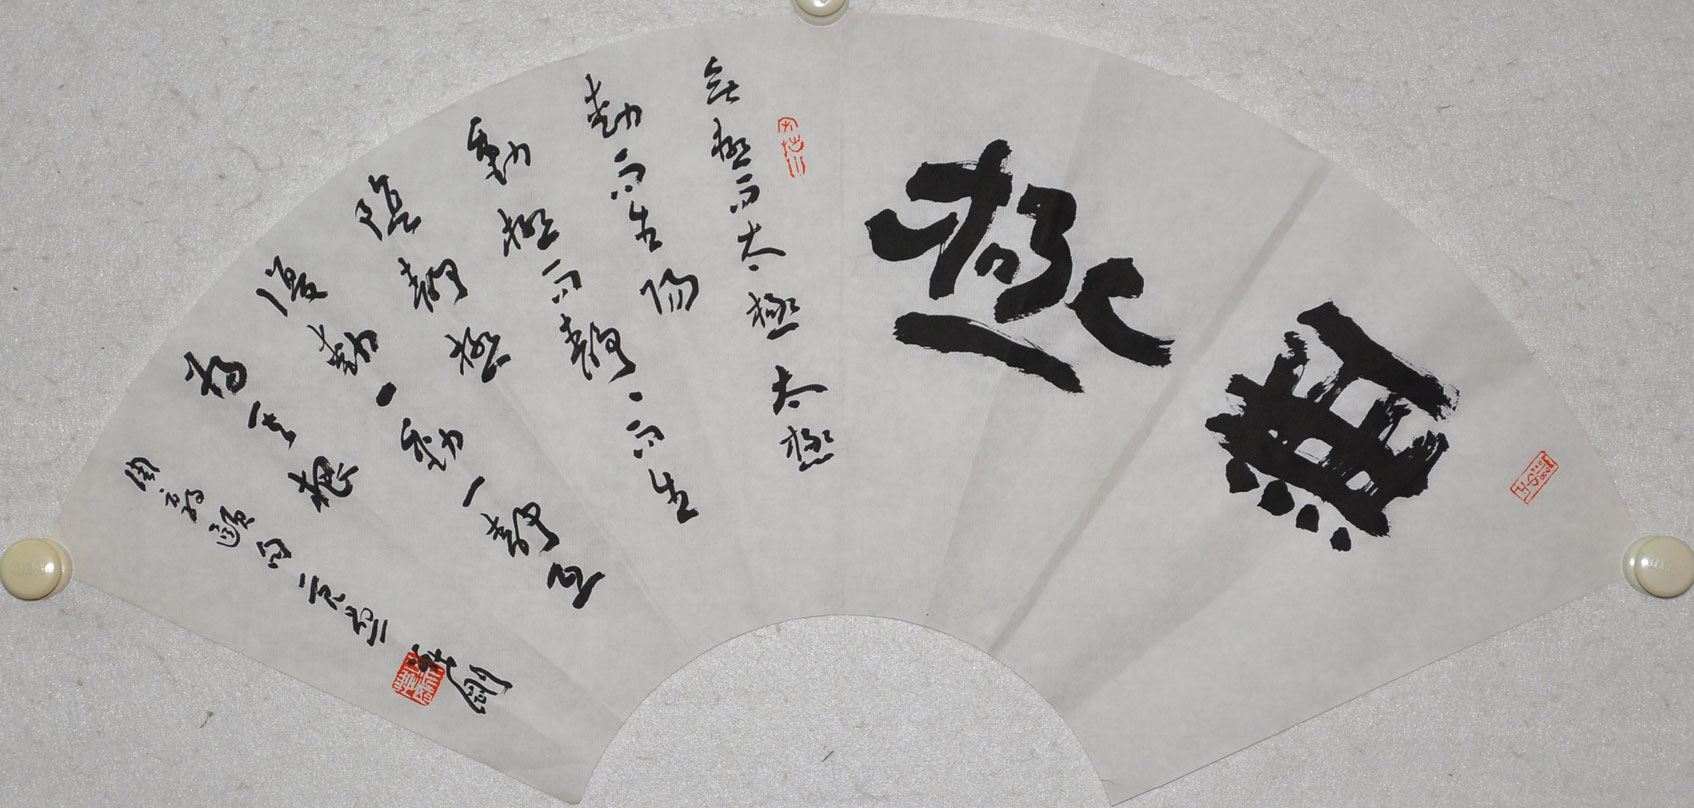 無極
无極而太極太極
動而生陽
動極而静、而生
陰静極
復動一動一静互
為其根
周敦頤句